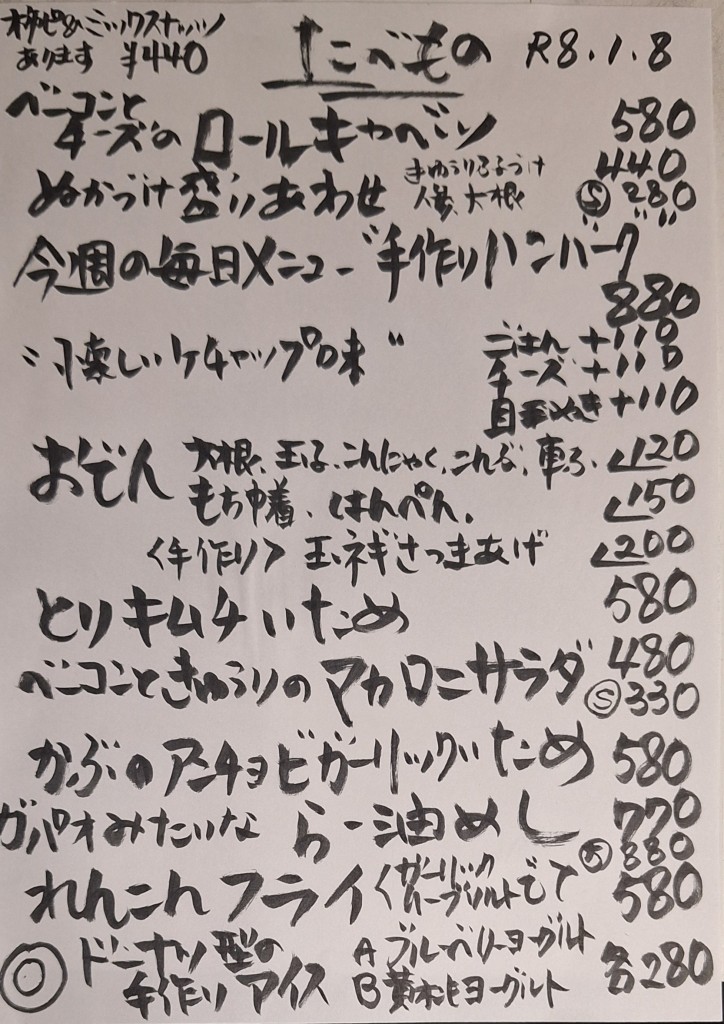 柿ピ&ミックスナッツ
あります ¥440
たべもの R8.1.8
ベーコンと
チーズの ロールキャベツ 580
ぬかづけ盛りあわせ きゅうり 人参、大根 440
Ⓢ 280
今週の毎日メニュー "手作りハンバーグ
880
懐しいケチャップ味" ごはん +110
チーズ +110
目玉やき +110
おでん 大根、玉子、こんにゃく、こんぶ、車ふ、 120
もち巾着、はんぺん、 150
〈手作り〉玉ネギさつまあげ 200
とりキムチいため 580
ベーコンときゅうりのマカロニサラダ 480
Ⓢ 330
かぶのアンチョビガーリックいため 580
ガパオみたいな らー油めし 770
880
れんこんフライ〈ガーリック
ハーブソルトで〉 580
◎ ドーナツ型の
手作りアイス
A ブルーベリーヨーグルト
B 黄桃ヨーグルト 各280